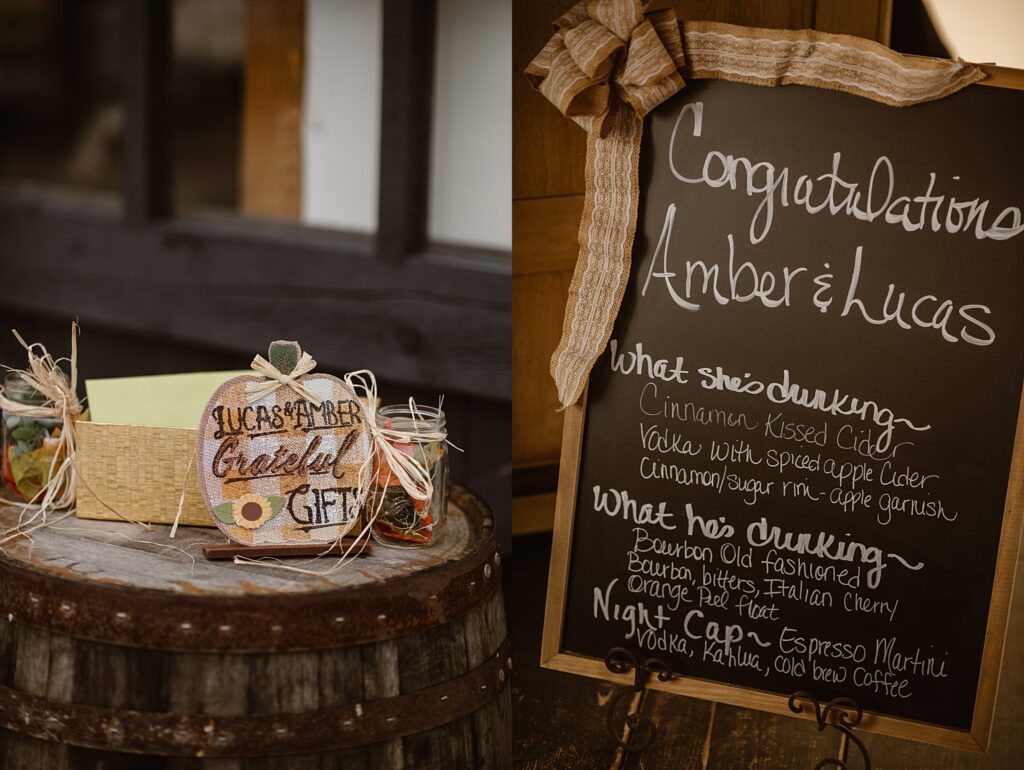 LUCAS & AMBER
Grateful
GIFTS
Congratulations
Amber & Lucas
What she's drinking~
Cinnamon Kissed Cider
Vodka with spiced apple Cider
Cinnamon/sugar rim-apple garnish
What he's drinking~
Bourbon Old fashioned
Bourbon, bitters, Italian cherry
Orange Peel float
Night Cap~ Espresso Martini
Vodka, Kahlua, cold brew coffee